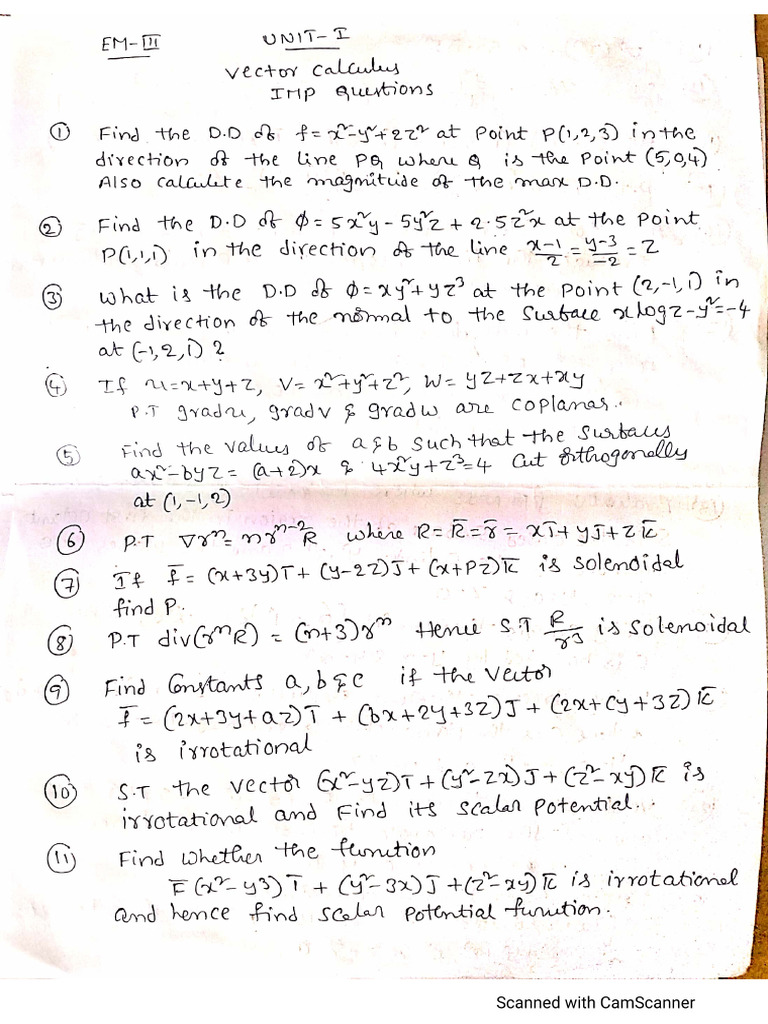 EM-III UNIT-I
Vector Calculus
IMP Questions
① Find the D.D of f=x²-y²+2z² at point P(1,2,3) in the
direction of the line PQ where Q is the point (5,0,4)
Also calculate the magnitude of the max D.D.
② Find the D.D of ϕ=5x²y-5y²z+2.5z²x at the point
P(1,1,1) in the direction of the line (x-1)/2=(y-3)/-2=z
③ What is the D.D of ϕ=xy²+yz³ at the point (2,-1,1) in
the direction of the normal to the surface xlogz-y²=-4
at (-1,2,1)?
④ If u=x+y+z, V=x²+y²+z², W=yz+zx+xy
P.T gradu, gradv & gradw are coplanar.
⑤ Find the values of a&b such that the surfaces
ax²-byz=(a+2)x & 4x²y+z³=4 cut orthogonally
at (1,-1,2)
⑥ P.T ∇rⁿ=nrⁿ⁻²R̄ where R=R̄=r̄=xī+yJ̄+zk̄
⑦ If f̄=(x+3y)ī+(y-2z)J̄+(x+Pz)k̄ is solenoidal
find P.
⑧ P.T div(rⁿR)=(n+3)rⁿ Hence S.T R/r³ is solenoidal
⑨ Find Constants a,b&c if the vector
f̄=(2x+3y+az)ī+(bx+2y+3z)J̄+(2x+cy+3z)k̄
is irrotational
⑩ S.T the vector (x²-yz)ī+(y²-zx)J̄+(z²-xy)k̄ is
irrotational and Find its scalar potential.
⑪ Find whether the function
F̄(x²-y3)ī+(y²-3x)J̄+(z²-xy)k̄ is irrotational
and hence find scalar potential function.
Scanned with CamScanner